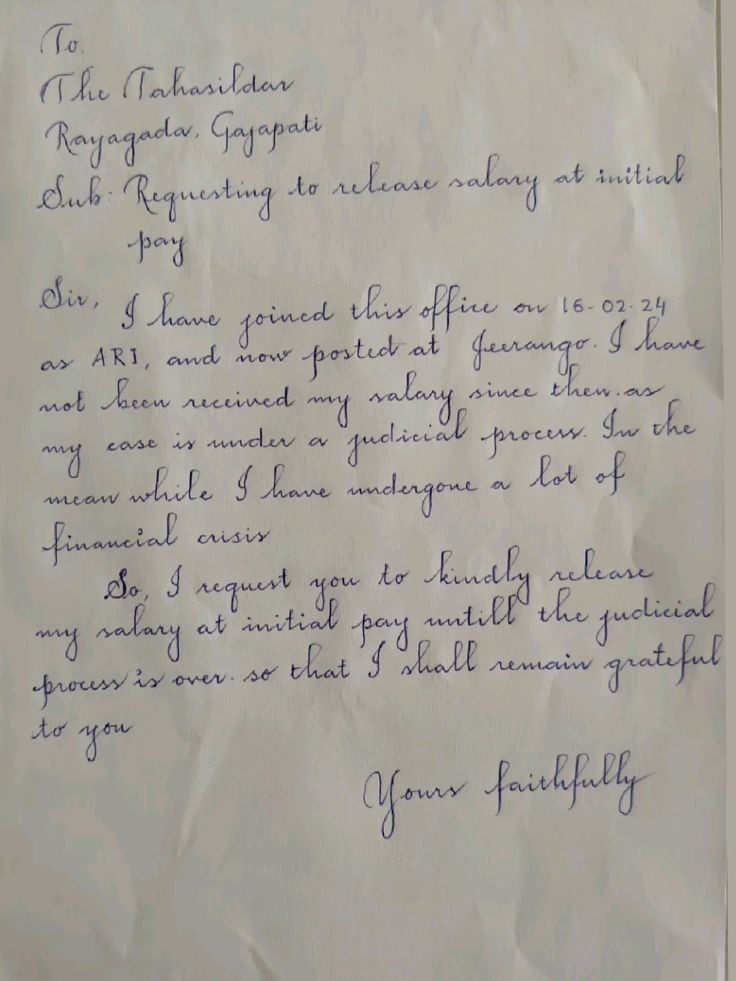 To,
The Tahasildar
Rayagada, Gajapati
Sub: Requesting to release salary at initial
pay
Sir,
I have joined this office on 16-02-24
as ARI, and now posted at Jeerango. I have
not been received my salary since then. as
my case is under a judicial process. In the
mean while I have undergone a lot of
financial crisis
So, I request you to kindly release
my salary at initial pay untill the judicial
process is over. so that I shall remain grateful
to you
Yours faithfully